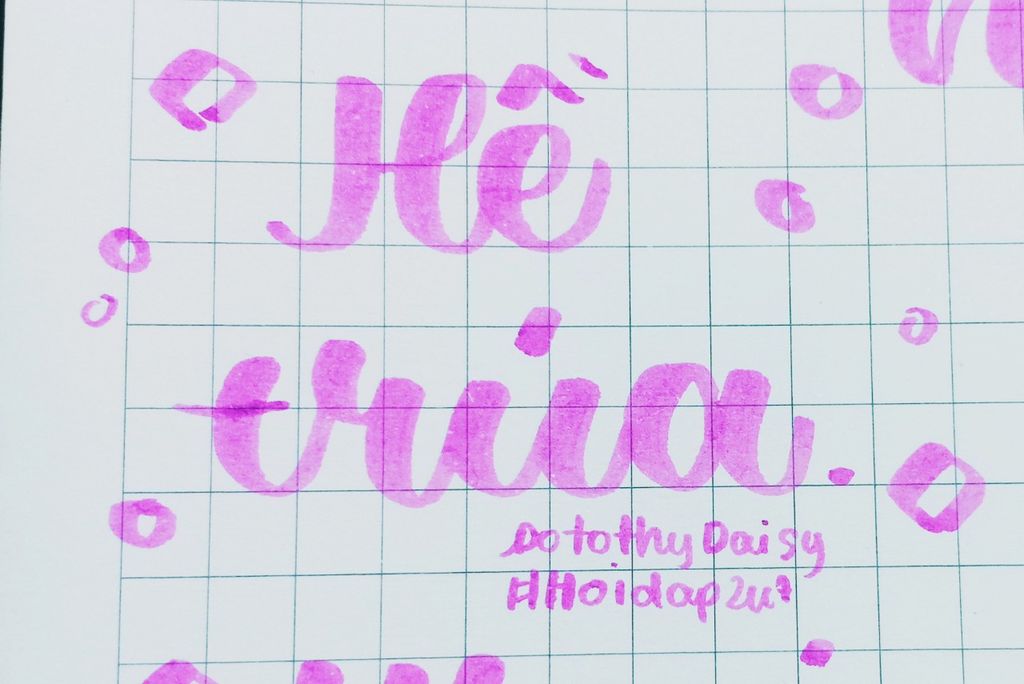 Hề
DotothyDaisy
#Hoidap247